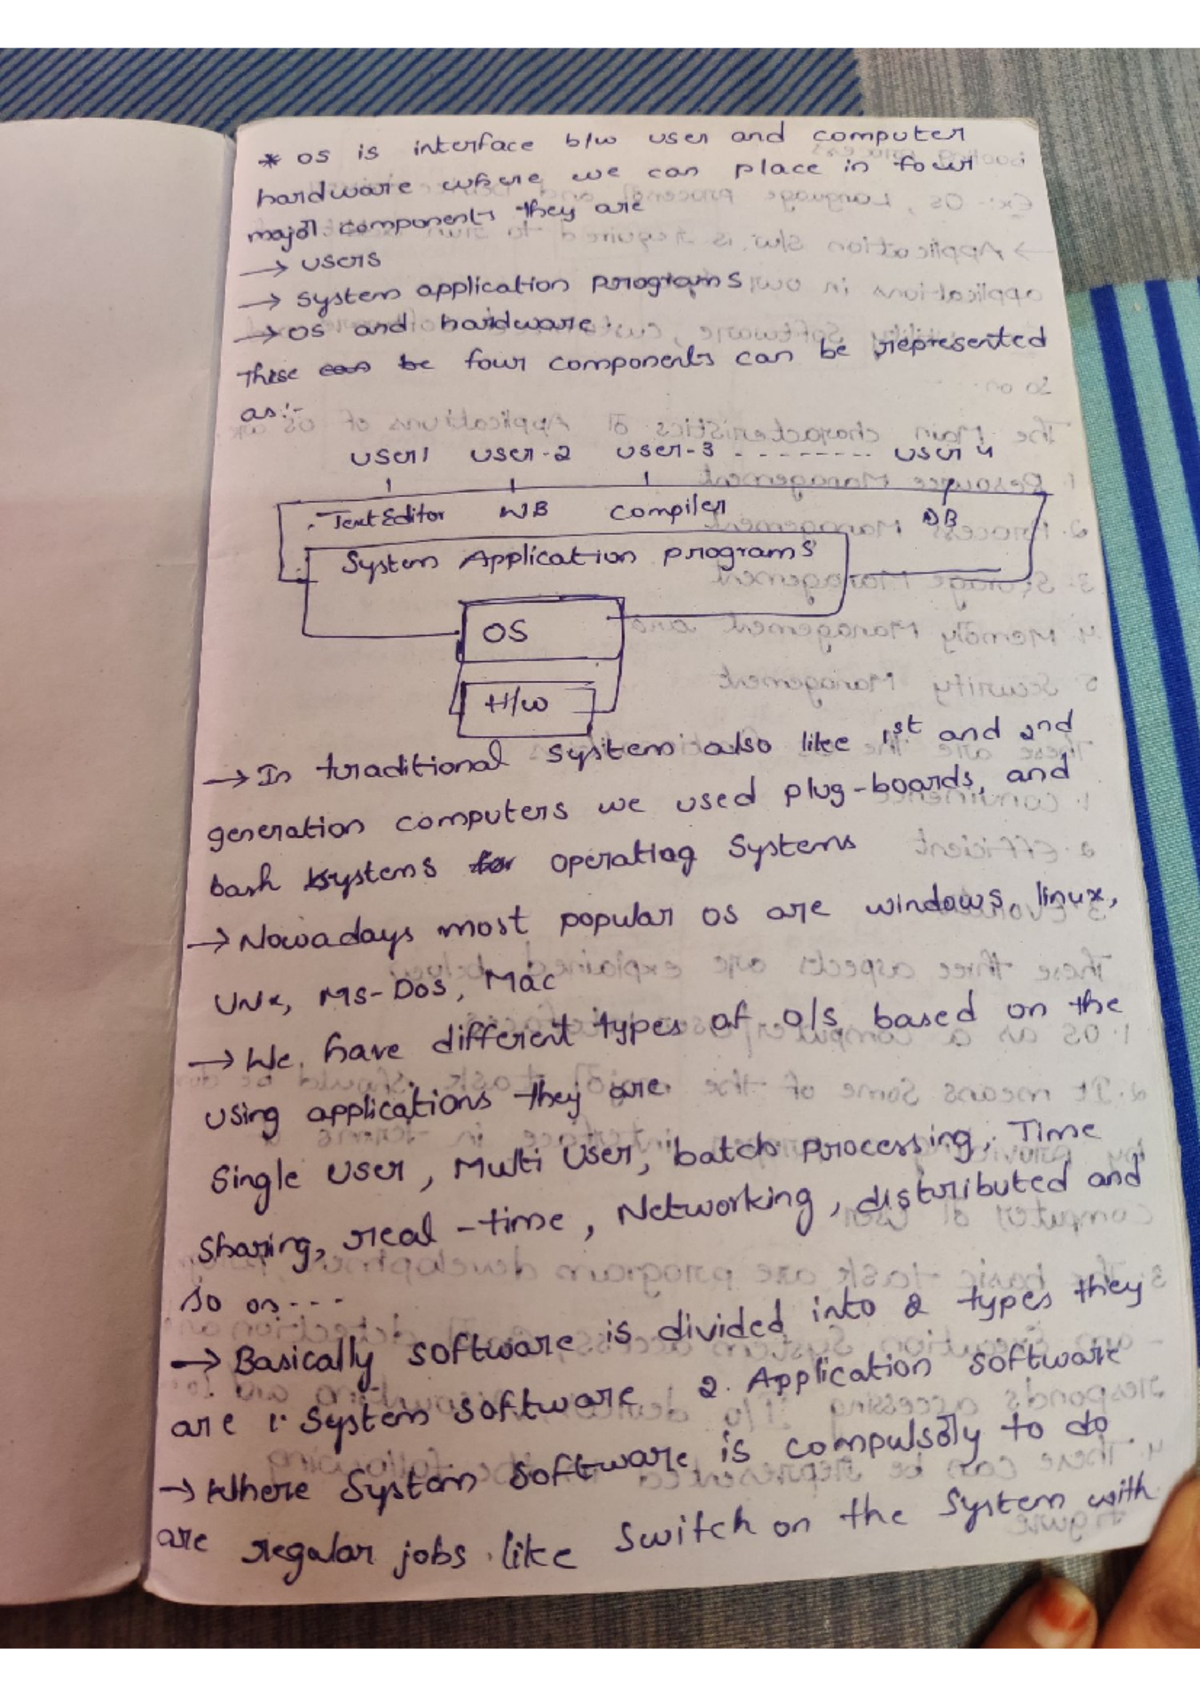 * OS is interface b/w user and computer
hardware where we can place in four
major components they are
→ users
→ System application programs
→ OS and hardware.
These can be four components can be represented
as:-
user1 user-2 user-3 -------- user 4
Text Editor WB Compiler DB
System Application programs
OS
H/w
→ In traditional system also like 1st and 2nd
generation computers we used plug-boards, and
bash systems for operating systems
→ Nowadays most popular OS are windows, linux,
UNx, MS-DOS, Mac
→ We have different types of O/S based on the
using applications they are.
Single user, Multi user, batch processing, Time
sharing, real-time, Networking, distributed and
so on---
→ Basically software is divided into 2 types they
are 1. System software 2. Application software
→ Where System software is compulsory to do
are regular jobs like switch on the System with